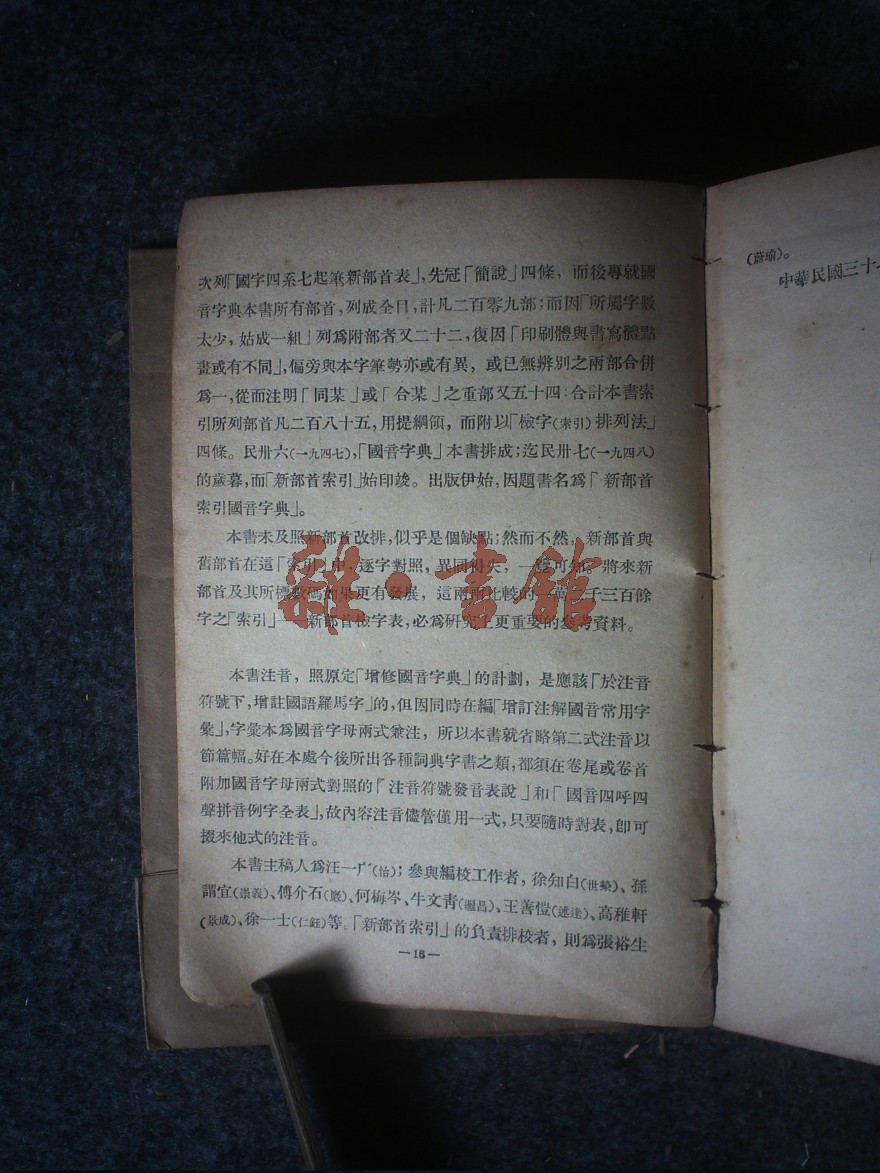 次列「國字四系七起筆新部首表」,先冠「簡說」四條，而後專就國
音字典本書所有部首,列成全目,計凡二百零九部;而因「所屬字數
太少，姑成一組」列爲附部者又二十二,復因「印刷體與書寫體點
畫或有不同」,偏旁與本字筆勢亦或有異，或已無辨別之兩部合併
爲一,從而注明「同某」或「合某」之重部又五十四:合計本書索
引所列部首凡二百八十五,用提綱領，而附以「檢字(索引)排列法」
四條。民卅六(一九四七),「國音字典」本書排成;迄民卅七(一九四八)
的歲暮,而「新部首索引」始印竣。出版伊始,因題書名爲「新部首
索引國音字典」。
本書未及照新部首改排,似乎是個缺點;然而不然，新部首與
舊部首在這「索引」中，逐字對照，異同得失，一覽可知。將來新
部首及其所標數碼如果更有發展，這兩兩比較的一萬 千三百餘
字之「索引」— 新部首檢字表,必爲研究上更重要的參考資料。
本書注音，照原定「增修國音字典」的計劃，是應該「於注音
符號下,增註國語羅馬字」的,但因同時在編「增訂注解國音常用字
彙」,字彙本爲國音字母兩式兼注，所以本書就省略第二式注音以
節篇幅。好在本處今後所出各種詞典字書之類,都須在卷尾或卷首
附加國音字母兩式對照的「注音符號發音表說」和「國音四呼四
聲拼音例字全表」,故內容注音儘管僅用一式,只要隨時對表,卽可
掇來他式的注音。
本書主稿人爲汪一厂(怡);參與編校工作者，徐知白(世榮)、孫
謂宜(崇義)、傅介石(巖)、何梅岑、牛文靑(繼昌)、王善愷(述達)、高稚軒
(景成)、徐一士(仁鈺)等。「新部首索引」的負責排校者，則爲張裕生
—16—
(蔚瑜)。
中華民國三十
雜·書館